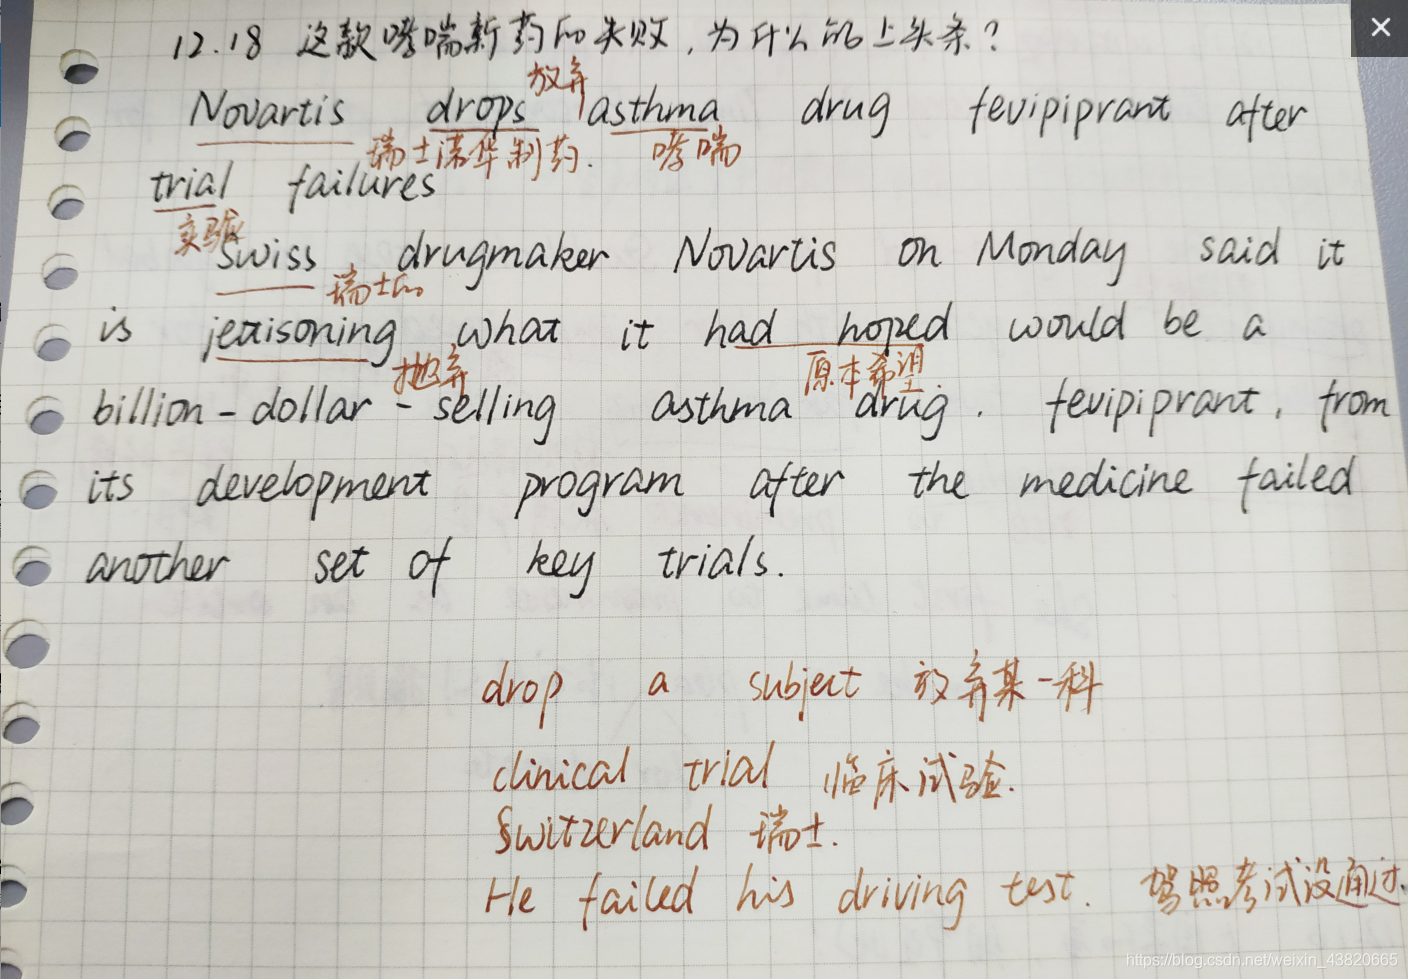 12.18 这款哮喘新药的失败，为什么能上头条？
放弃
Novartis drops asthma drug fevipiprant after
瑞士诺华制药. 哮喘
trial failures
实验
Swiss drugmaker Novartis on Monday said it
瑞士的
is jettisoning what it had hoped would be a
抛弃 原本希望
billion-dollar-selling asthma drug, fevipiprant, from
its development program after the medicine failed
another set of key trials.
drop a subject 放弃某一科
clinical trial 临床试验.
Switzerland 瑞士.
He failed his driving test. 驾照考试没通过.
https://blog.csdn.net/weixin_43820665